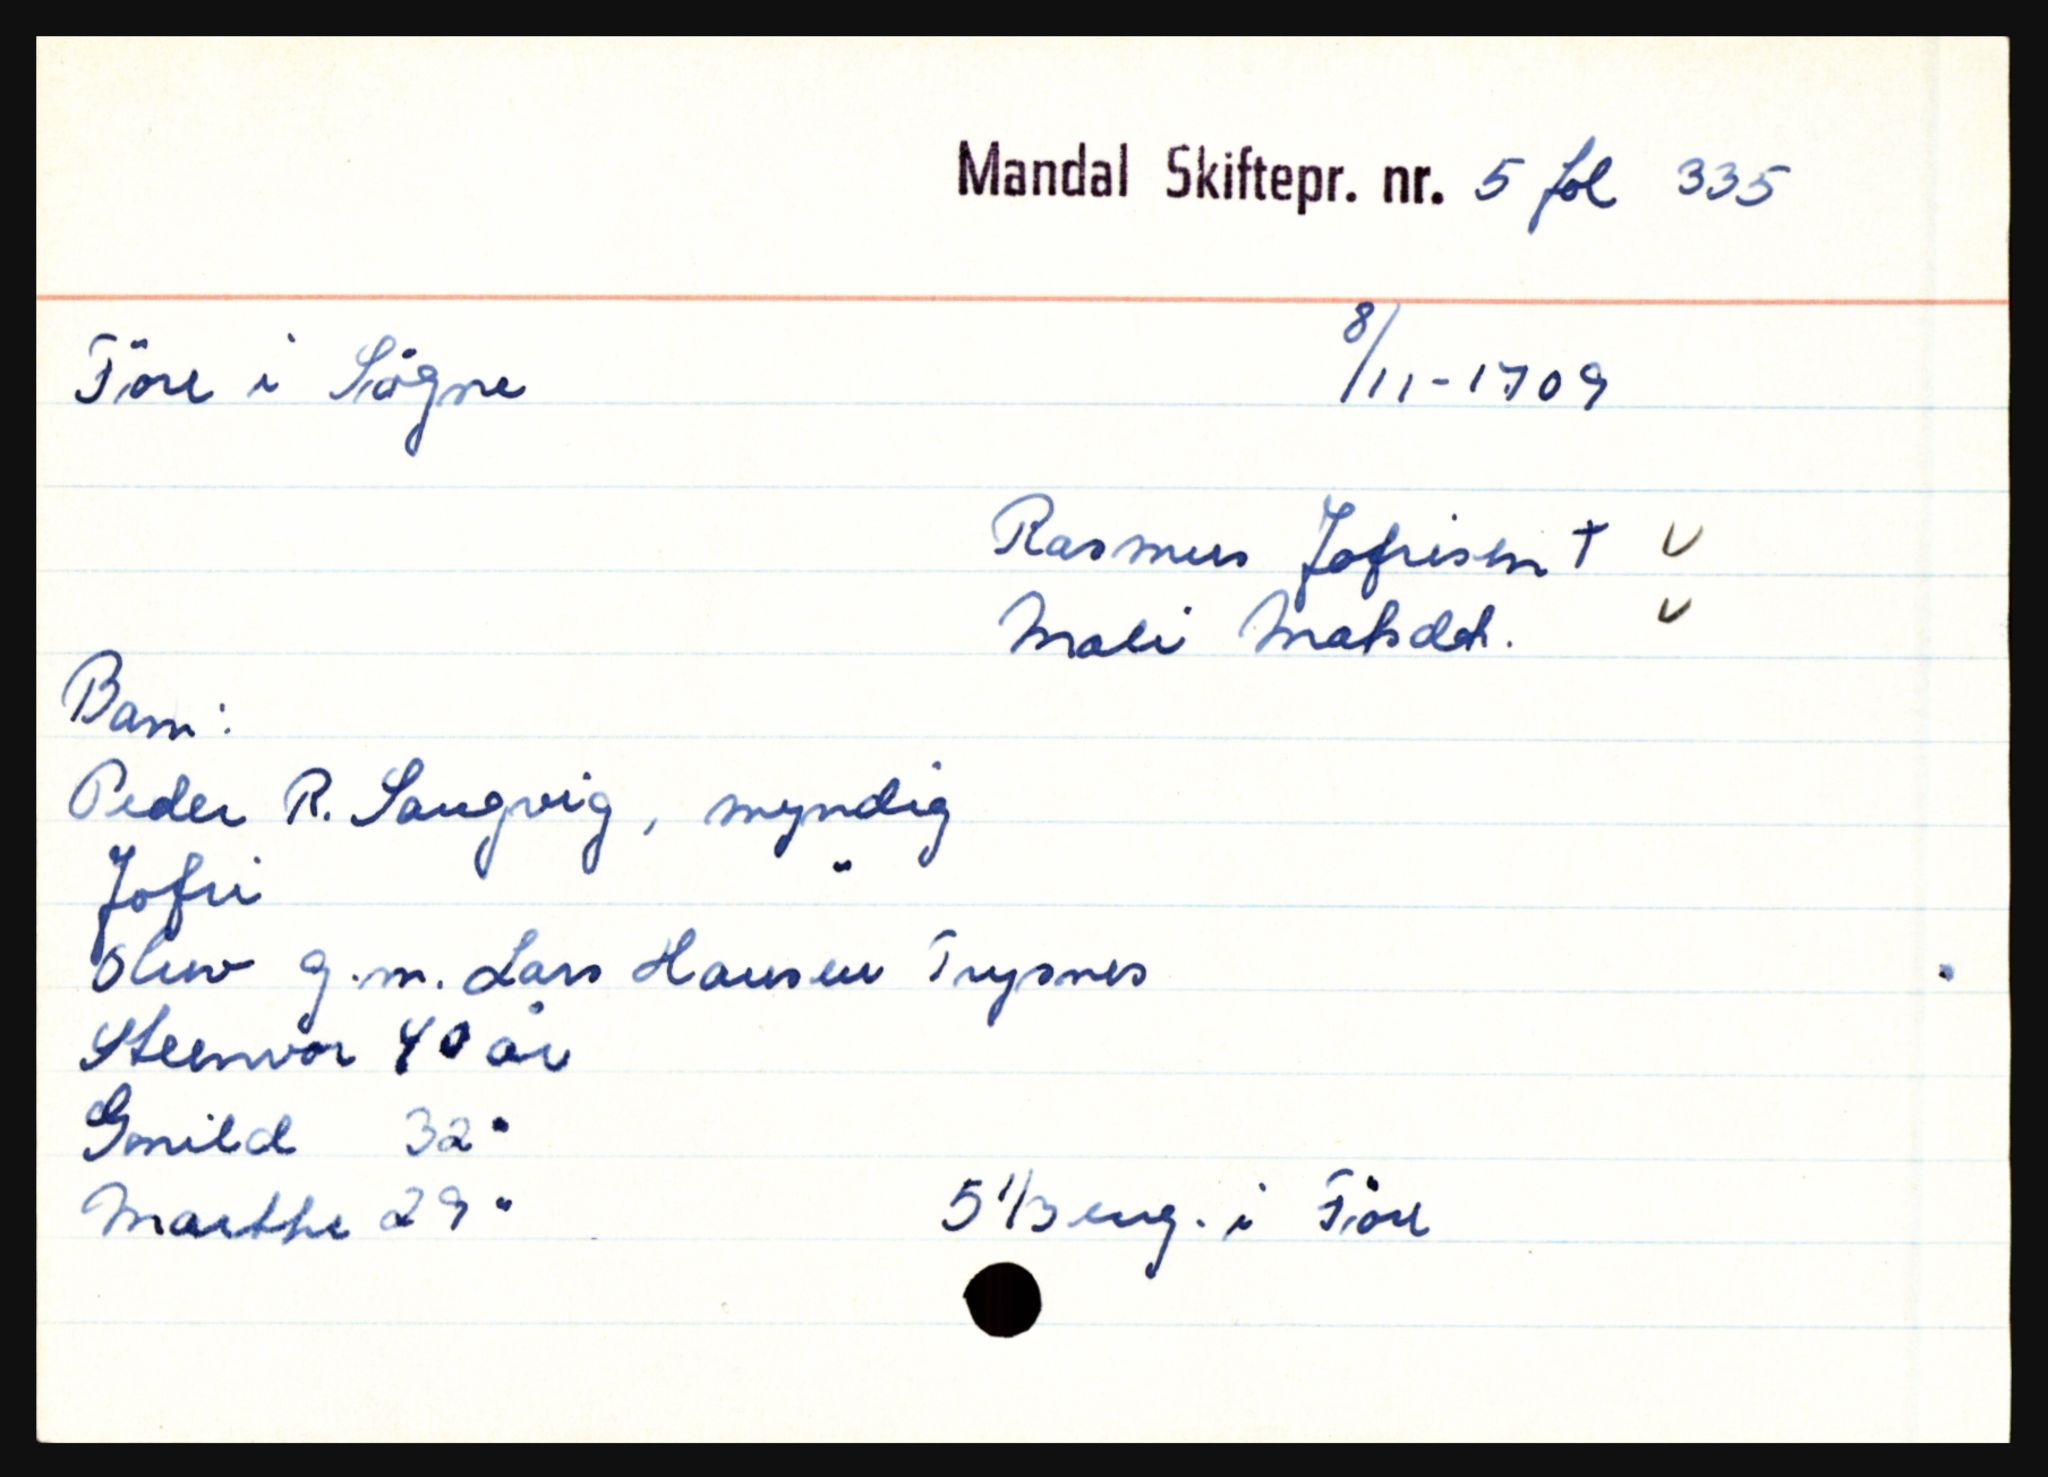 Mandal Skiftepr. nr. 5 fol 335
Töre i Sögne 8/11-1709
Rasmus Jofrisen † V
Mali Matsdt. V
Barn:
Peder R. Sangvig, myndig
Jofri "
Oluv g.m. Lars Hansen Trysnes
Steenvor 40 år
Gunild 32 "
Marthe 29 " 5 1/3 eng. i Töre